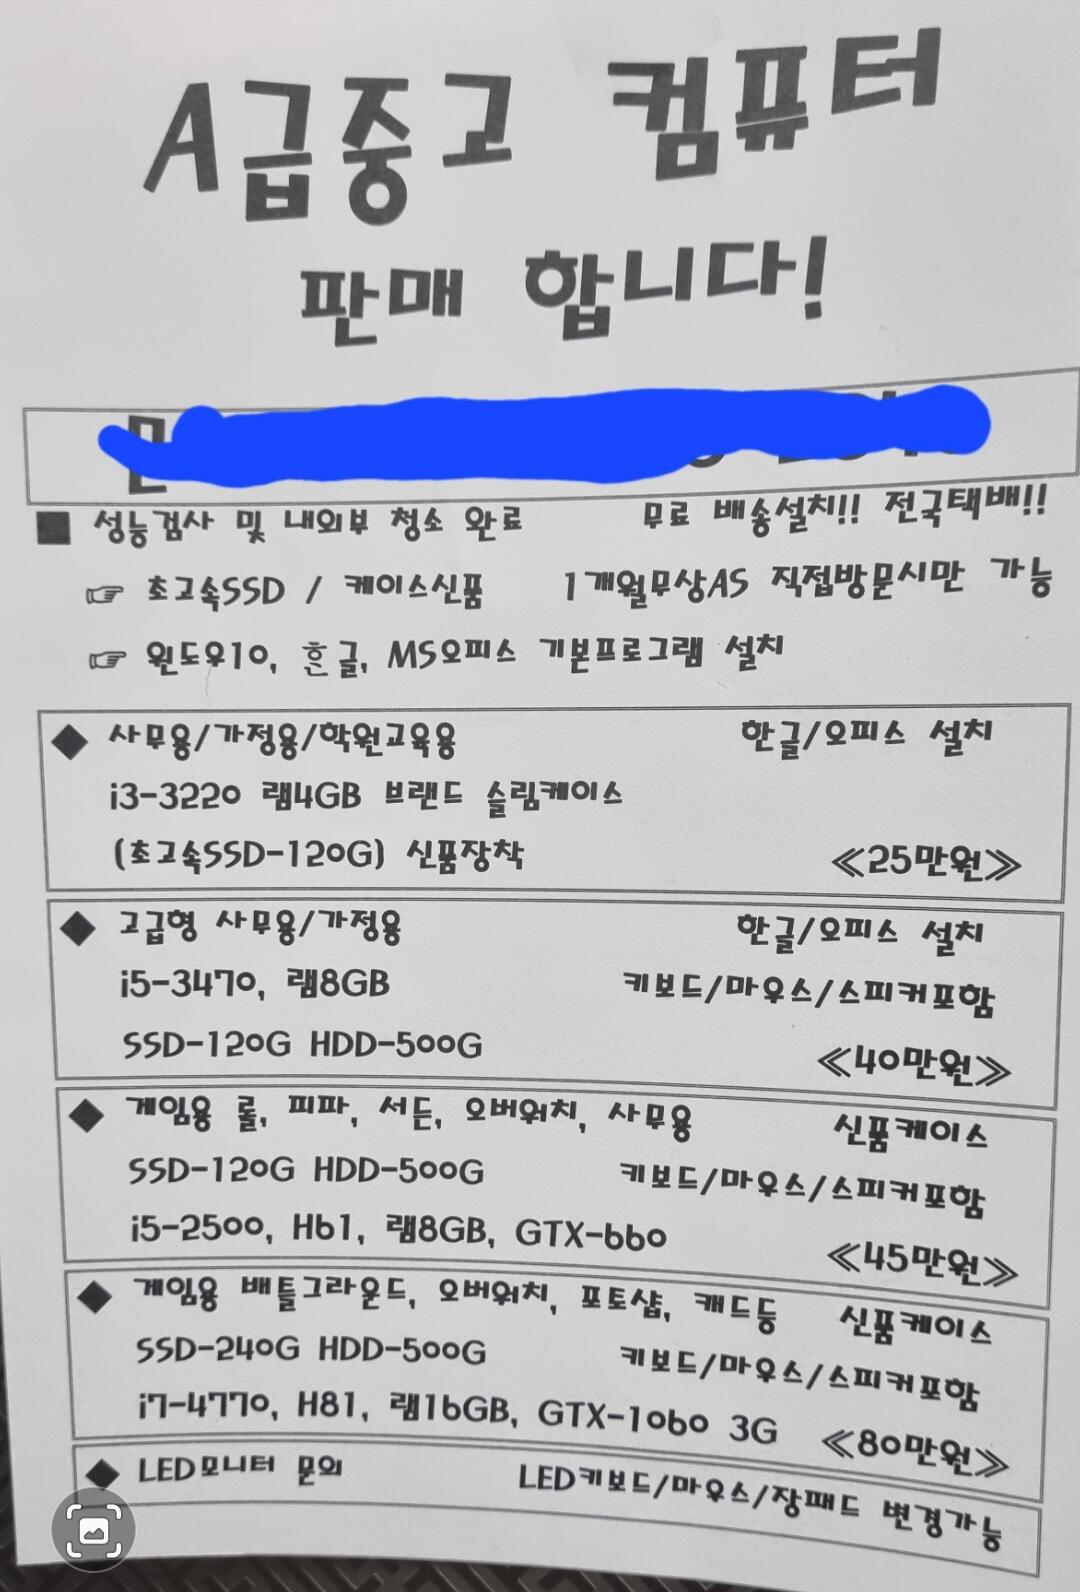 A급중고 컴퓨터
판매 합니다!
■ 성능검사 및 내외부 청소 완료 무료 배송설치!! 전국택배!!
☞ 초고속SSD / 케이스신품 1개월무상AS 직접방문시만 가능
☞ 윈도우10, 흔글, MS오피스 기본프로그램 설치
◆ 사무용/가정용/학원교육용 한글/오피스 설치
i3-3220 램4GB 브랜드 슬림케이스
(초고속SSD-120G) 신품장착 ≪25만원≫
◆ 고급형 사무용/가정용 한글/오피스 설치
i5-3470, 램8GB 키보드/마우스/스피커포함
SSD-120G HDD-500G ≪40만원≫
◆ 게임용 롤, 피파, 서든, 오버워치, 사무용 신품케이스
SSD-120G HDD-500G 키보드/마우스/스피커포함
i5-2500, H61, 램8GB, GTX-660 ≪45만원≫
◆ 게임용 배틀그라운드, 오버워치, 포토샵, 캐드등 신품케이스
SSD-240G HDD-500G 키보드/마우스/스피커포함
i7-4770, H81, 램16GB, GTX-1060 3G ≪80만원≫
◆ LED모니터 문의 LED키보드/마우스/장패드 변경가능